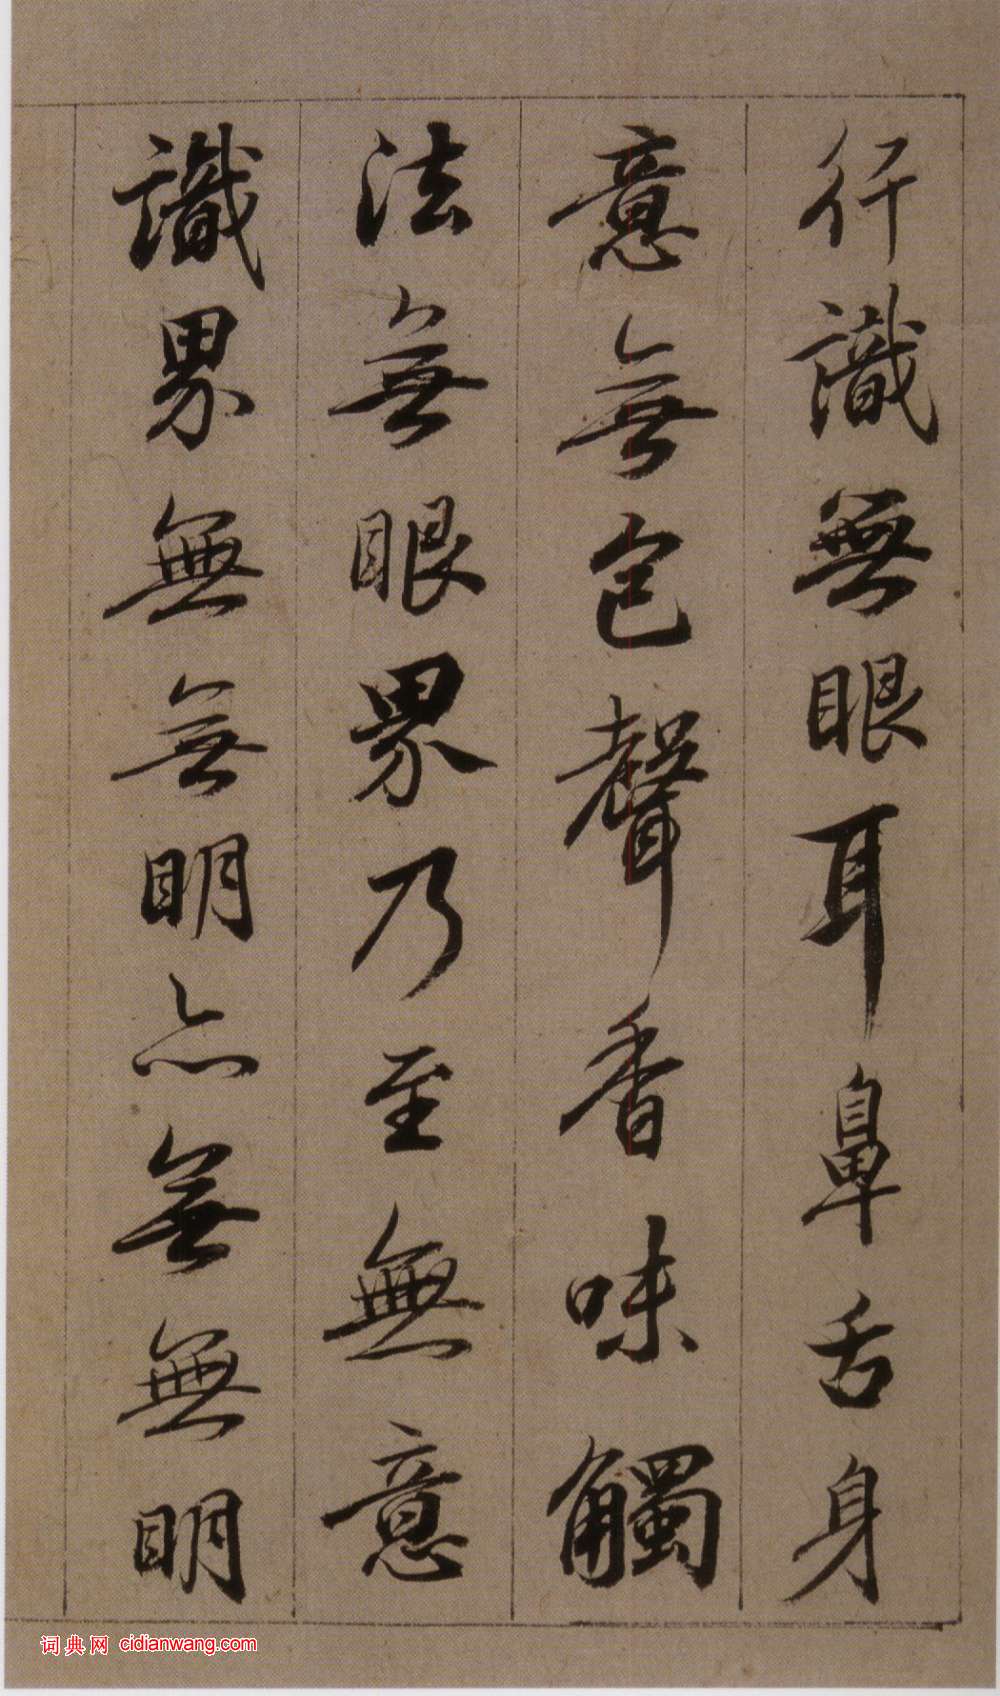 行識無眼耳鼻舌身
意無色聲香味觸
法無眼界乃至無意
識界無無明亦無無明
词典网 cidianwang.com